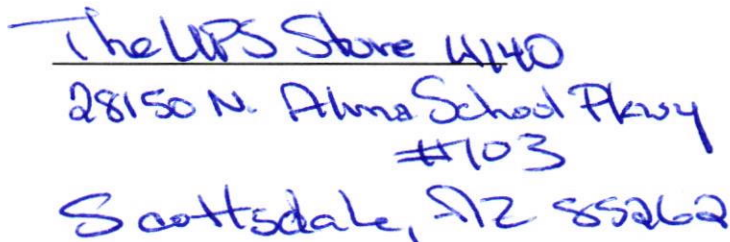 The UPS Store 4140
28150 N. Alma School Pkwy
#103
Scottsdale, AZ 85262